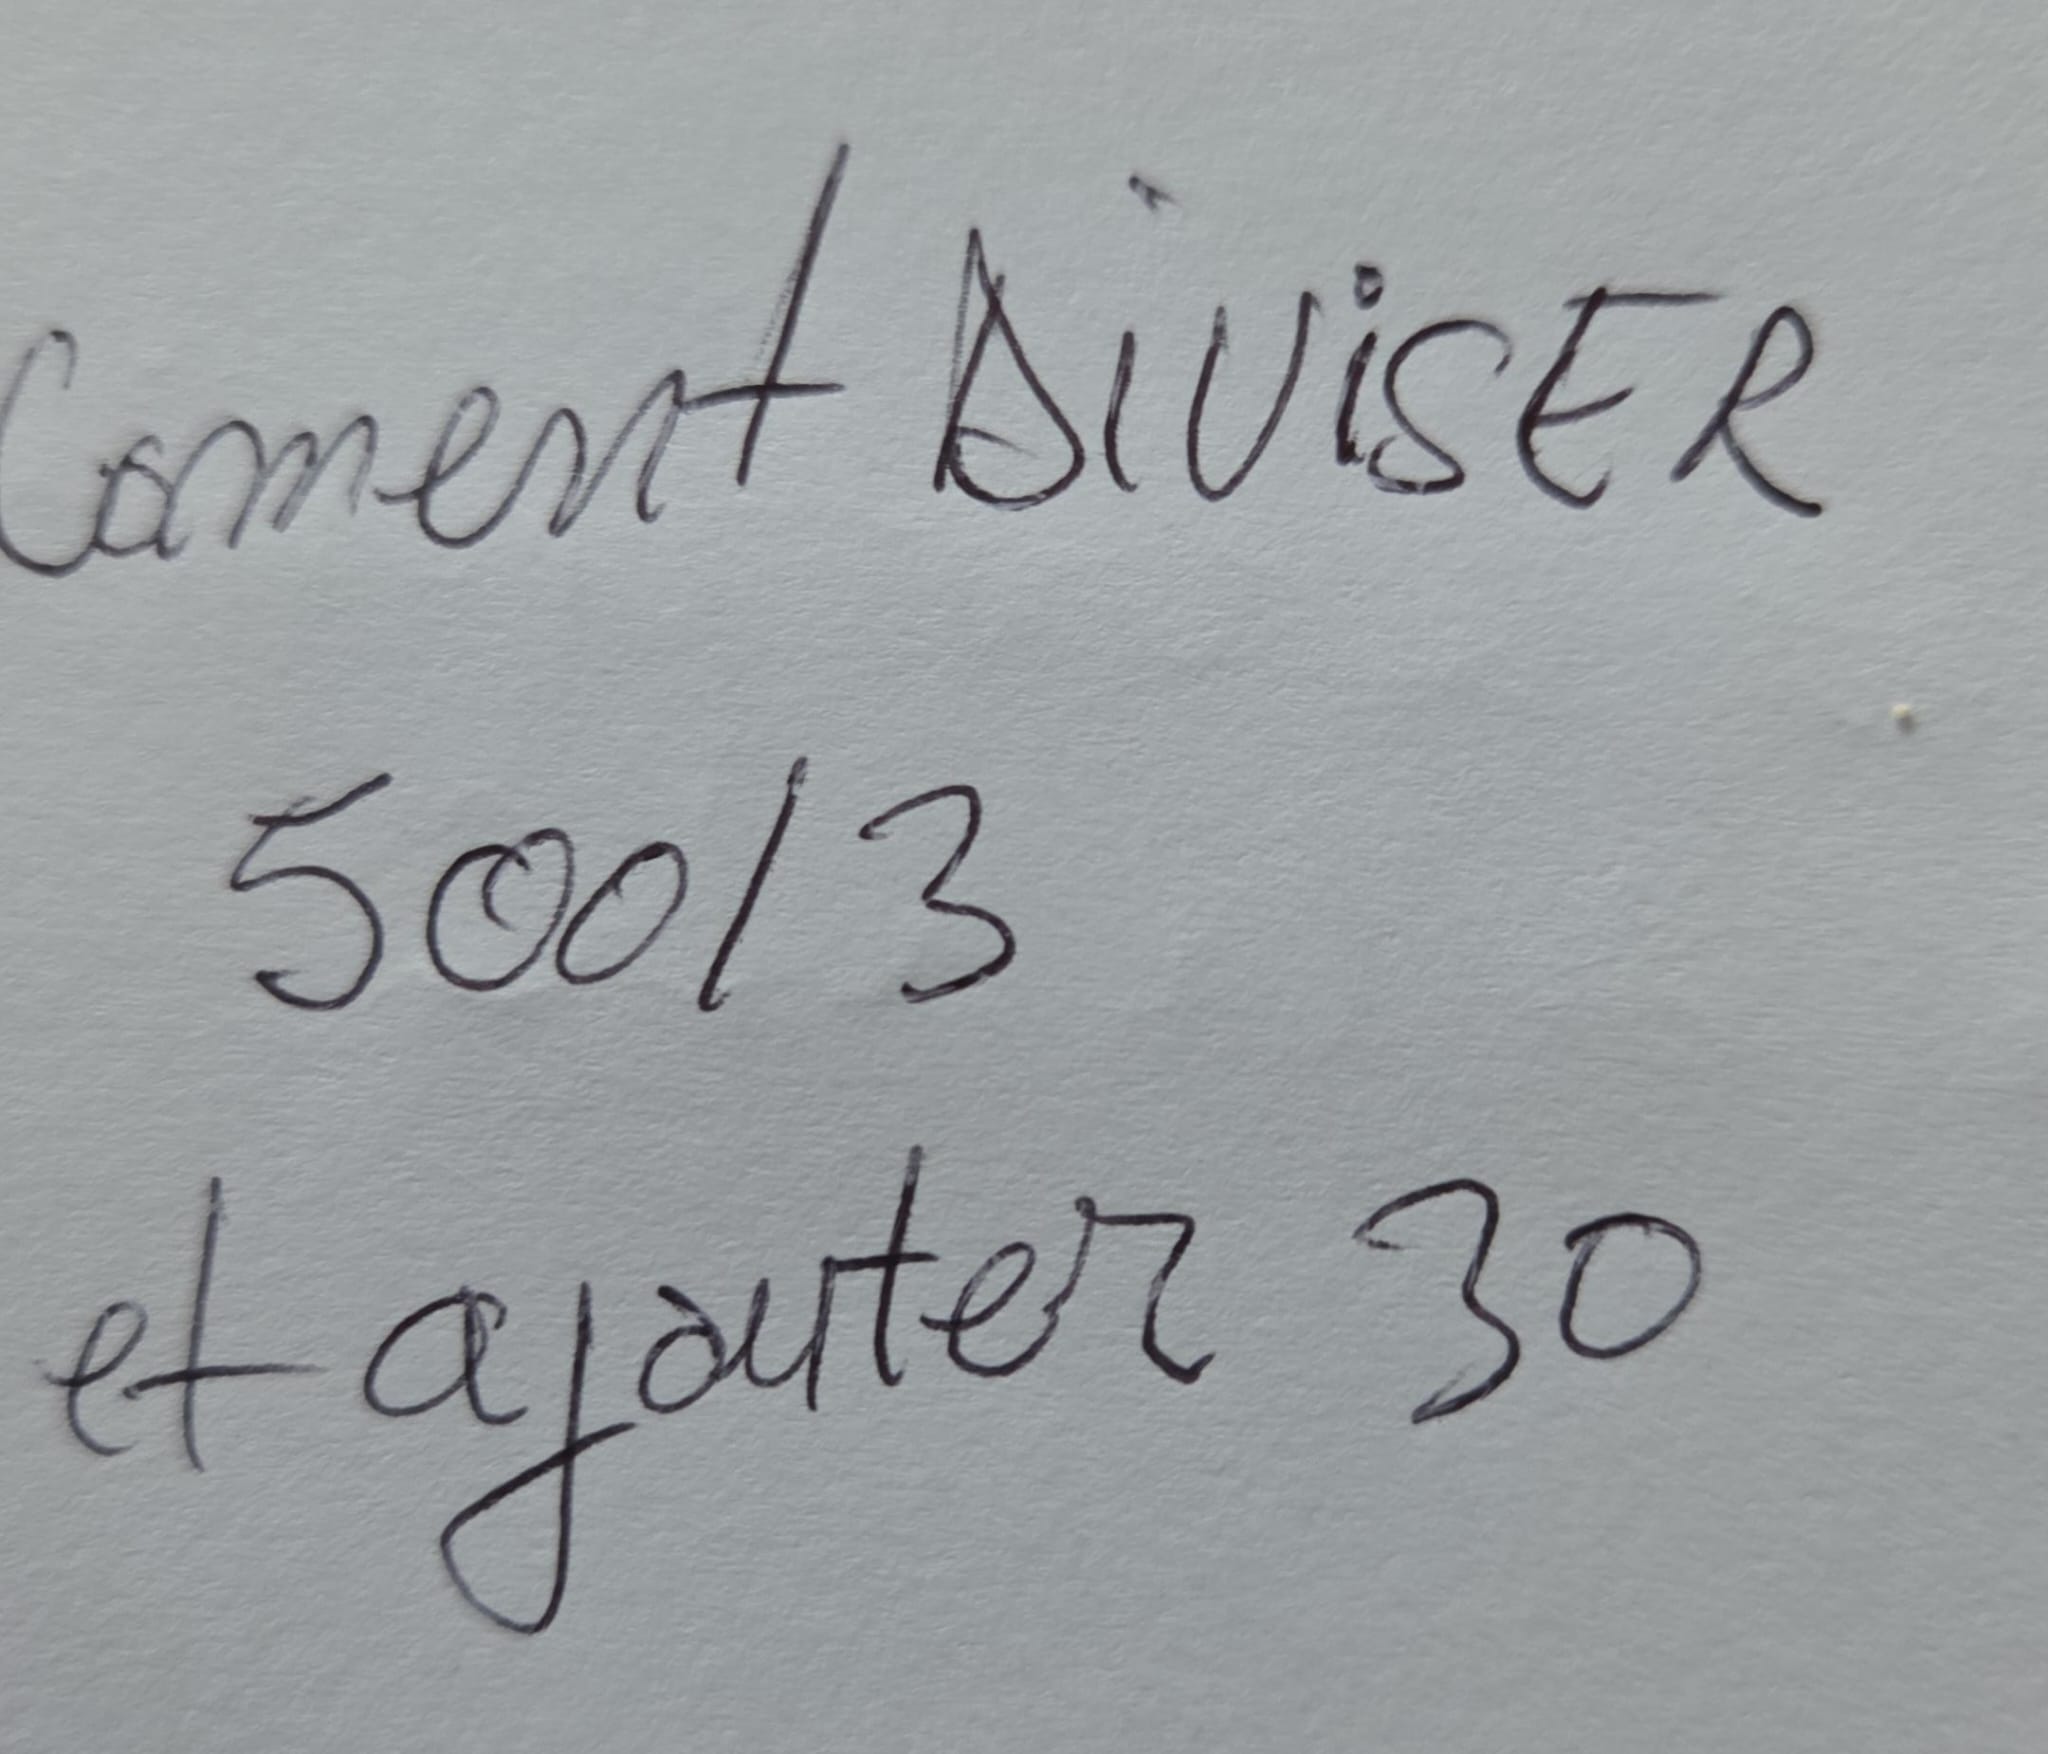 Coment DiViSER
500/3
et ajouter 30